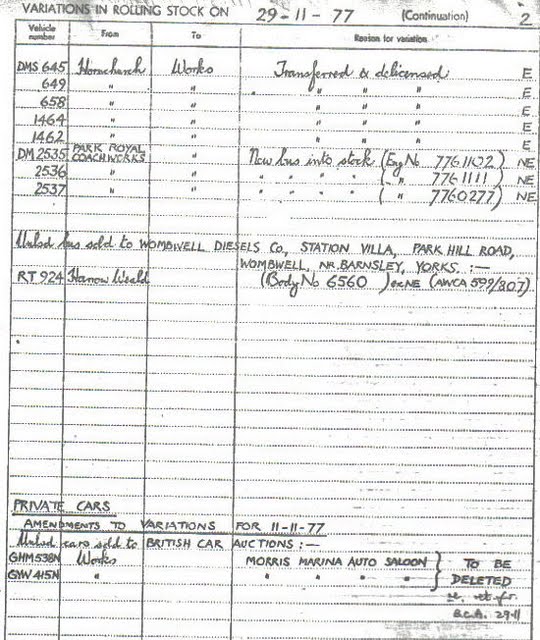 VARIATIONS IN ROLLING STOCK ON 29-11-77 (Continuation) 2
Vehicle number From To Reason for variation
DMS 645 Hornchurch Works Transferred & delicensed E
649 " " " " " E
658 " " " " " E
1464 " " " " " E
1462 " " " " " E
DM 2535 PARK ROYAL COACHWORKS " New bus into stock (Eng No 7761102) NE
2536 " " " " " " ( " " 7761111 ) NE
2537 " " " " " " ( " " 7760277) NE
Unlsd bus sold to WOMBWELL DIESELS Co, STATION VILLA, PARK HILL ROAD,
WOMBWELL, NR BARNSLEY, YORKS. :—
RT 924 Harrow Weald (Body No 6560 ) ex NE (AWCA 599/307)
PRIVATE CARS
AMENDMENTS TO VARIATIONS FOR 11-11-77
Unlsd cars sold to BRITISH CAR AUCTIONS :—
GHM 538N Works MORRIS MARINA AUTO SALOON } TO BE
GYW 415N " " " " " } DELETED
B.C.A. 29-11